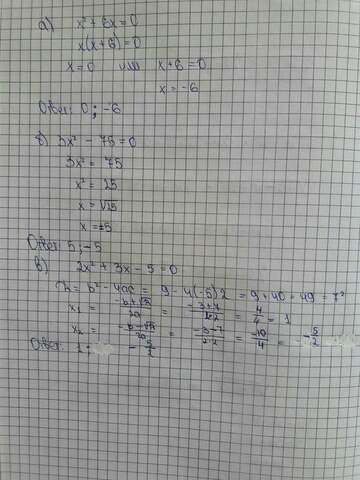 а) x² + 6x = 0
x(x+6) = 0
x = 0 или x + 6 = 0
x = -6
Ответ: 0; -6
б) 3x² - 75 = 0
3x² = 75
x² = 25
x = √25
x = ±5
Ответ: 5; -5
в) 2x² + 3x - 5 = 0
D = b² - 4ac = 9 - 4(-5)2 = 9 + 40 = 49 = 7²
x₁ = (-b+√D)/2a = (-3+7)/(2·2) = 4/4 = 1
x₂ = (-b-√D)/2a = (-3-7)/(2·2) = -10/4 = -5/2
Ответ: 1; -5/2